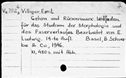 Villiger, Emil.
Gehirn und Rückenmark. Leitfaden
für das Studium der Morphologie und des
Faserverlaufes. Bearbeitet von E.
Ludwig. 14. Aufl. Basel, B. Schwa-
be & Co, 1946.